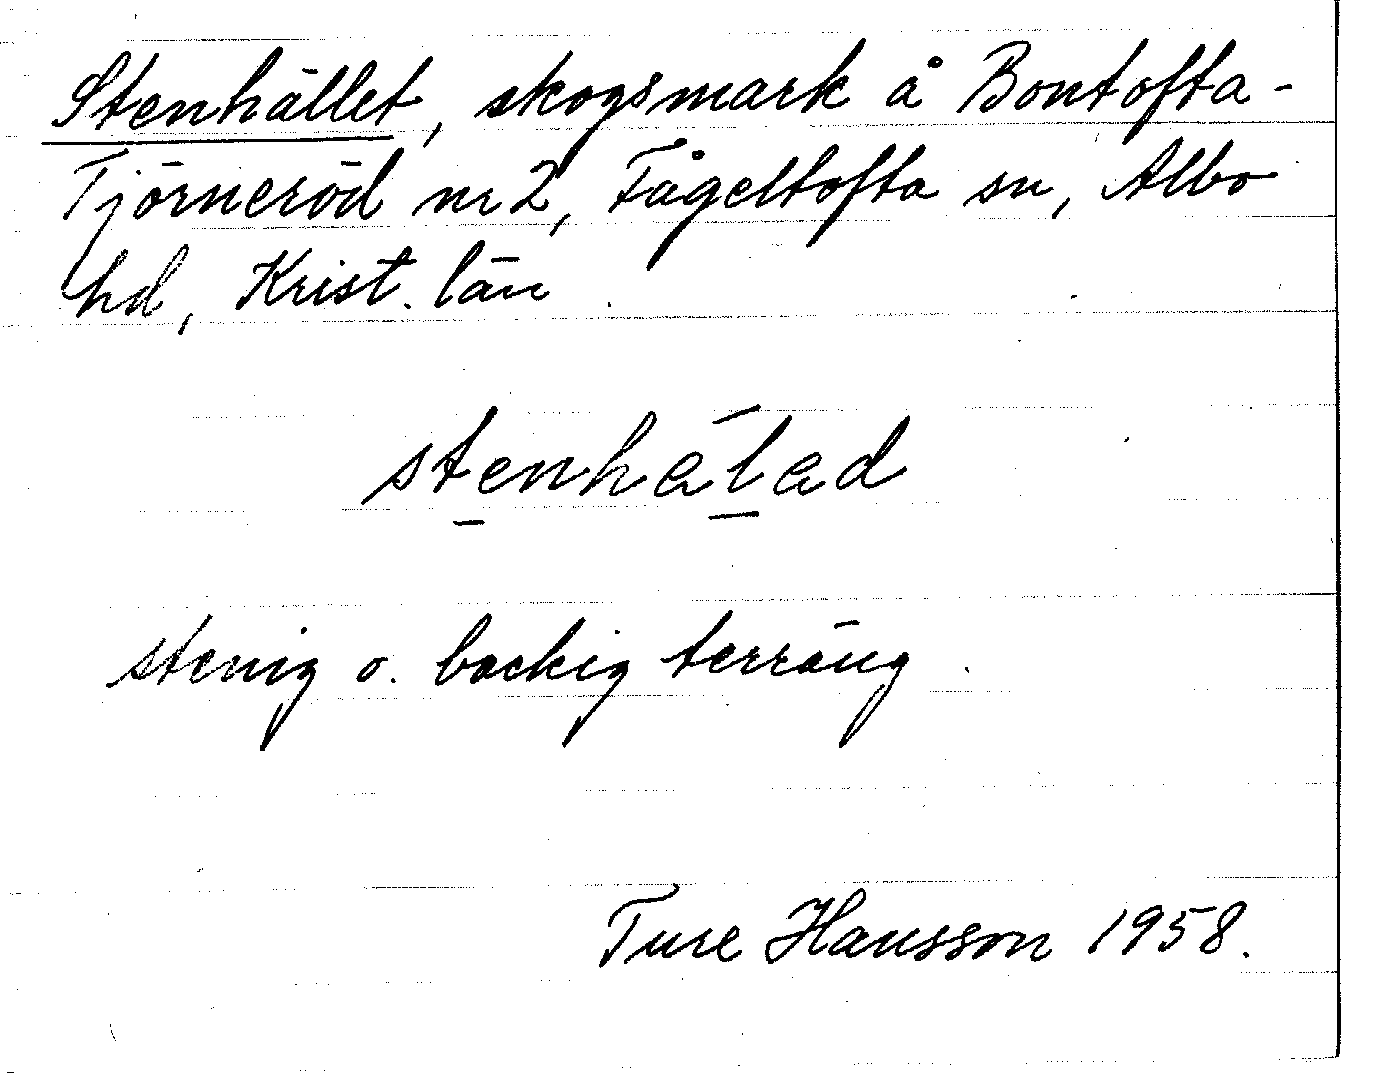 Stenhället, skogsmark å Bontofta-
Tjörneröd nr 2, Fågeltofta sn, Albo
hd, Krist. län
stenhälad
stenig o. backig terräng.
Ture Hansson 1958.